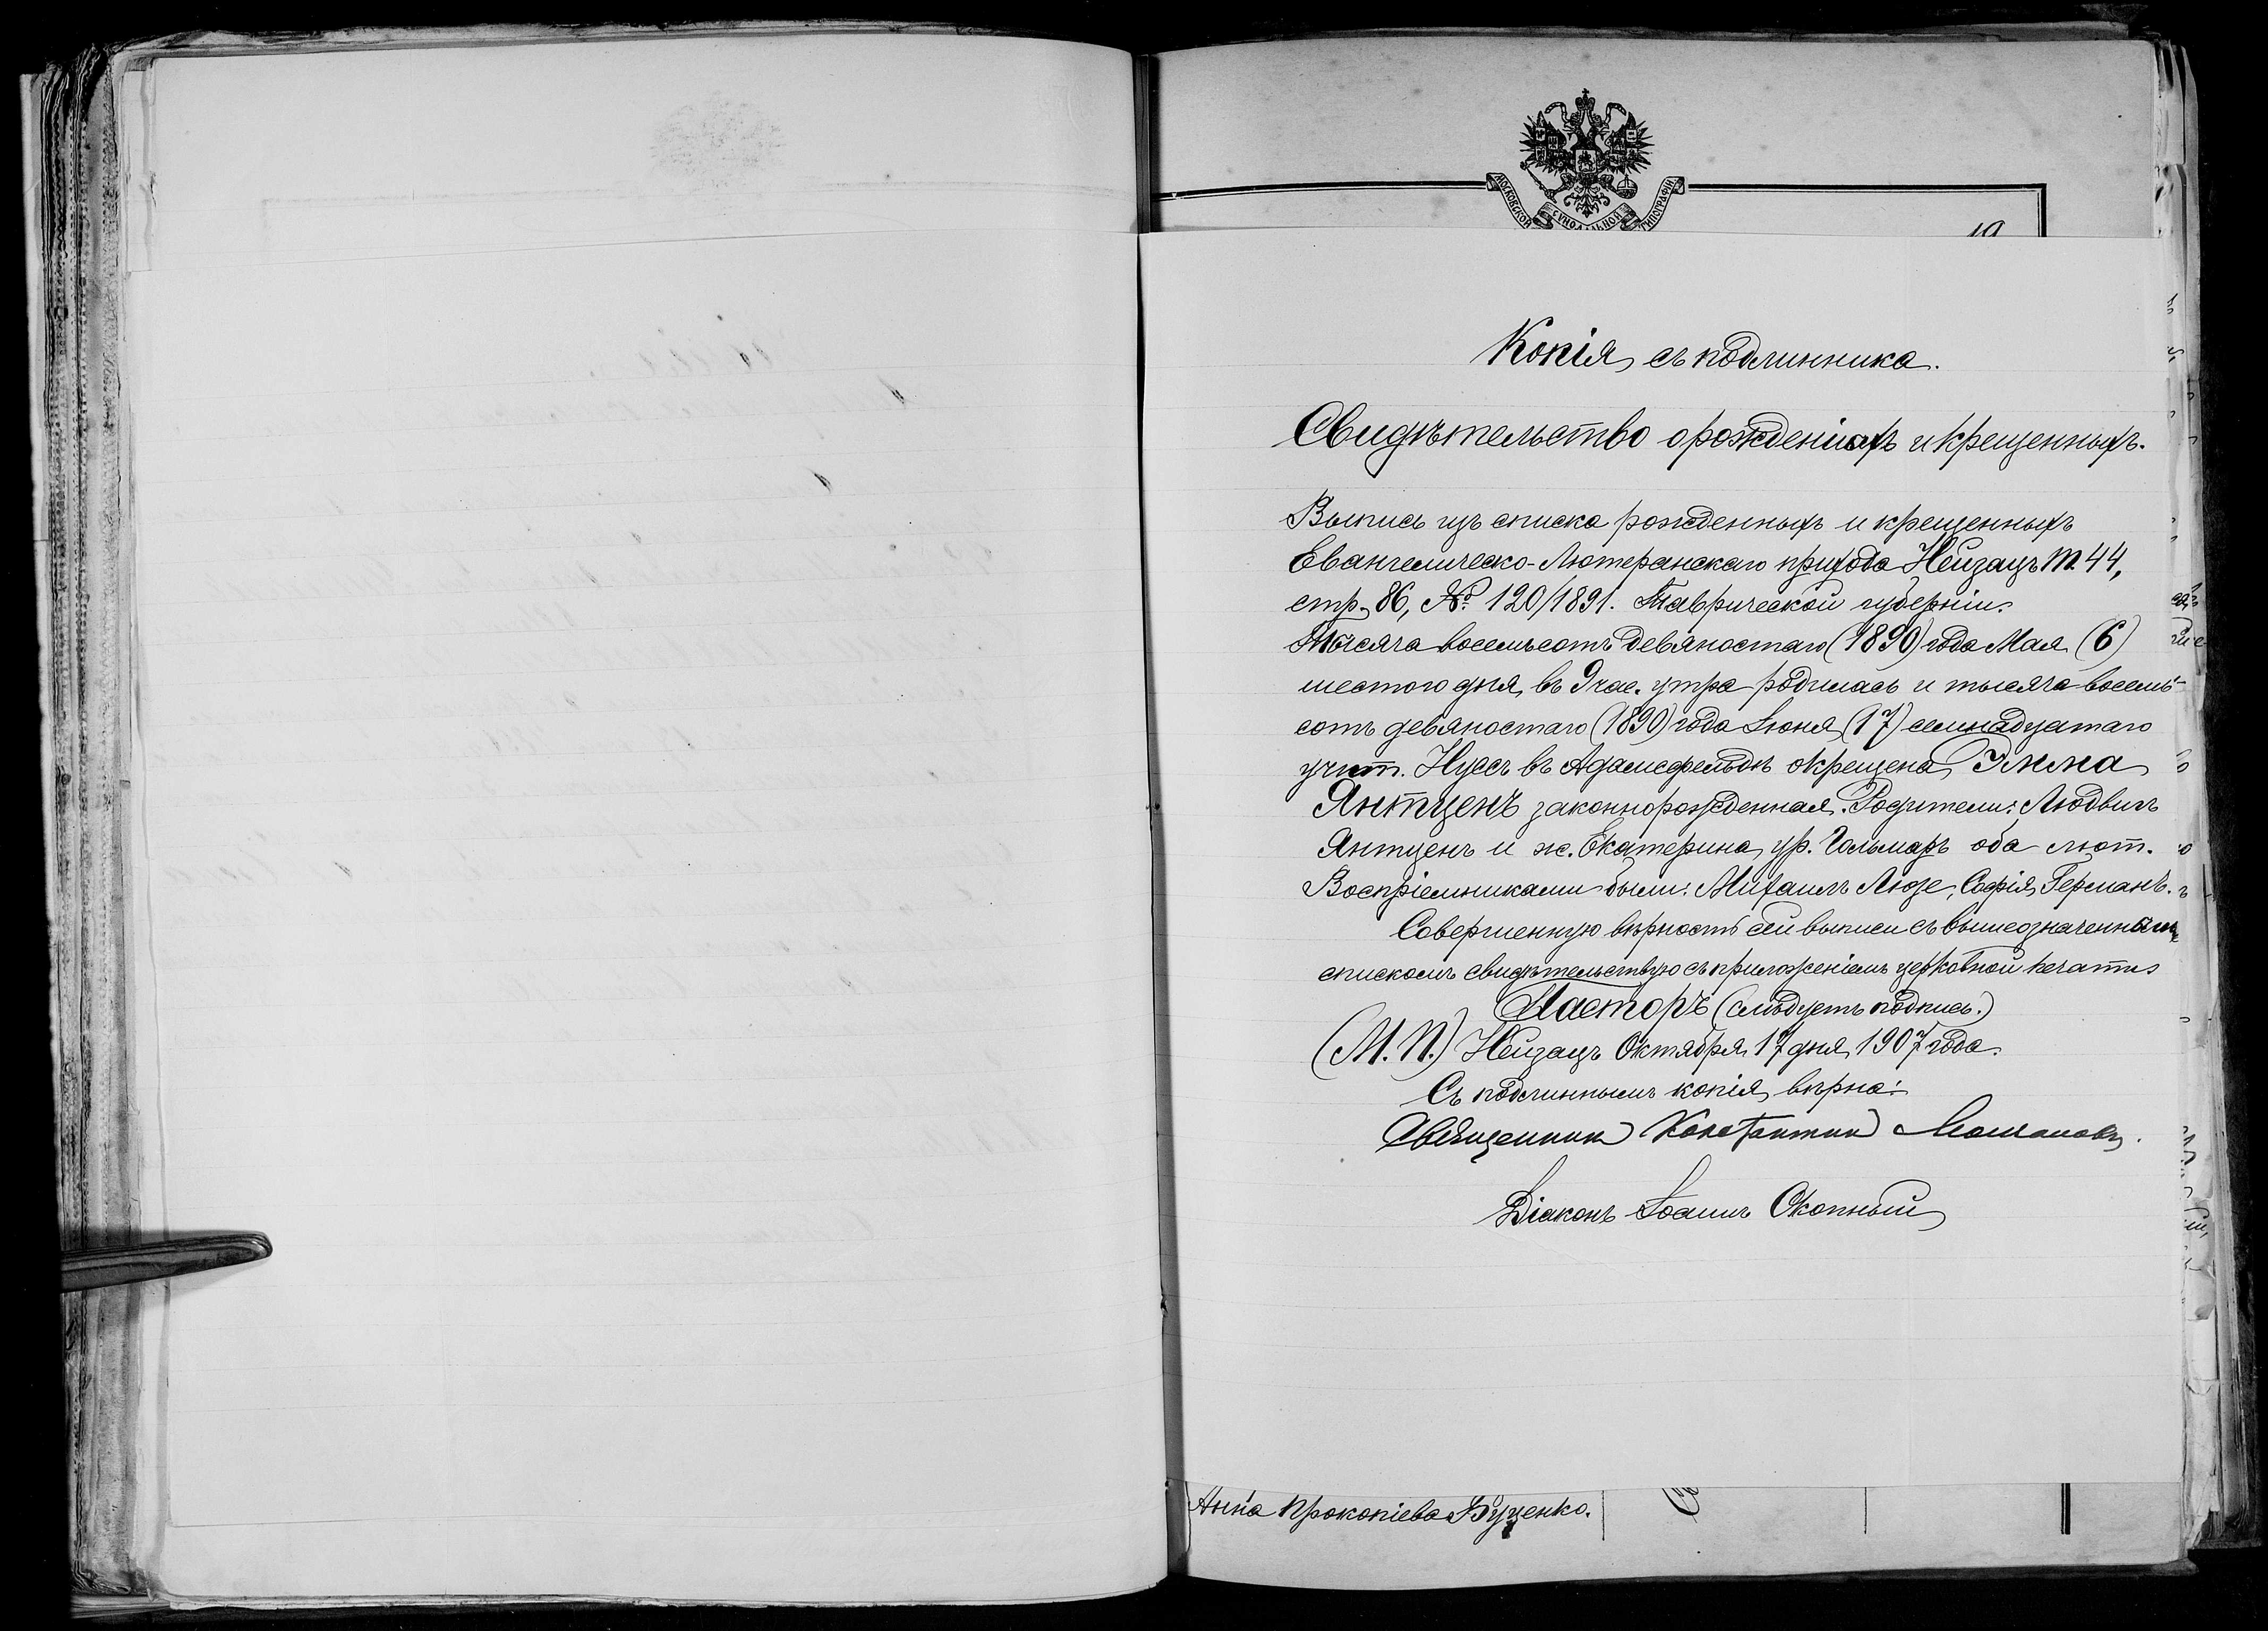 МОСКОВСКОЙ СѴНОДАЛЬНОЙ ТИПОГРАФІИ
Копія съ подлинника.
Свидѣтельство о рожденіяхъ и крещенныхъ.
Выпись изъ списка рожденныхъ и крещенныхъ
Евангелическо-Лютеранскаго прихода Нейзацъ т. 44,
стр. 86, № 120/1891. Таврической губерніи.
Тысяча восемьсотъ девяностаго (1890) года Мая (6)
шестого дня, въ 9 час. утра родилась и тысяча восемь-
сотъ девяностаго (1890) года Іюня (17) семнадцатаго
учит. Нуссъ въ Адамсфельдѣ окрещена Эмма
Янтценъ законнорожденная. Родители: Людвигъ
Янтценъ и ж. Екатерина, ур. Гольмаръ оба лют.
Воспріемниками были: Михаилъ Люзе, Софія Германъ.
Совершенную вѣрность сей выписи съ вышеозначеннымъ
спискомъ свидѣтельствую съ приложеніемъ церковной печати
Пасторъ (слѣдуетъ подпись.)
(М. П.) Нейзацъ Октября 17 дня 1907 года.
Съ подлиннымъ копія вѣрна:
Священникъ Константинъ
Діаконъ Іоаннъ Окопный
Анна Прокопіева Буценко.